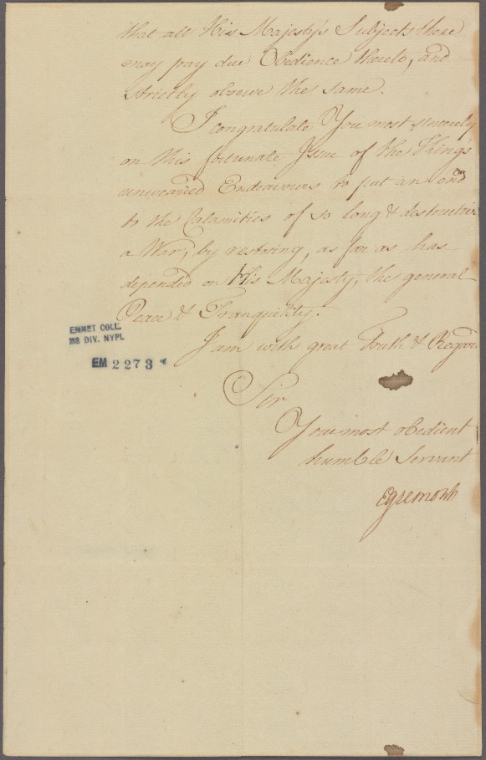 that all His Majesty's Subjects there
may pay due Obedience thereto, and
Strictly observe the same.
I congratulate You most sincerely
on this fortunate Issue of the Kings
unwearied Endeavours to put an end
to the Calamities of so long & destructive
a War, by restoring, as far as has
depended on His Majesty, the general
Peace & Tranquility.
I am with great Truth & Regard
Sir
Your most obedient
humble Servant
Egremont
EMMET COLL.
MSS DIV. NYPL
EM 2273